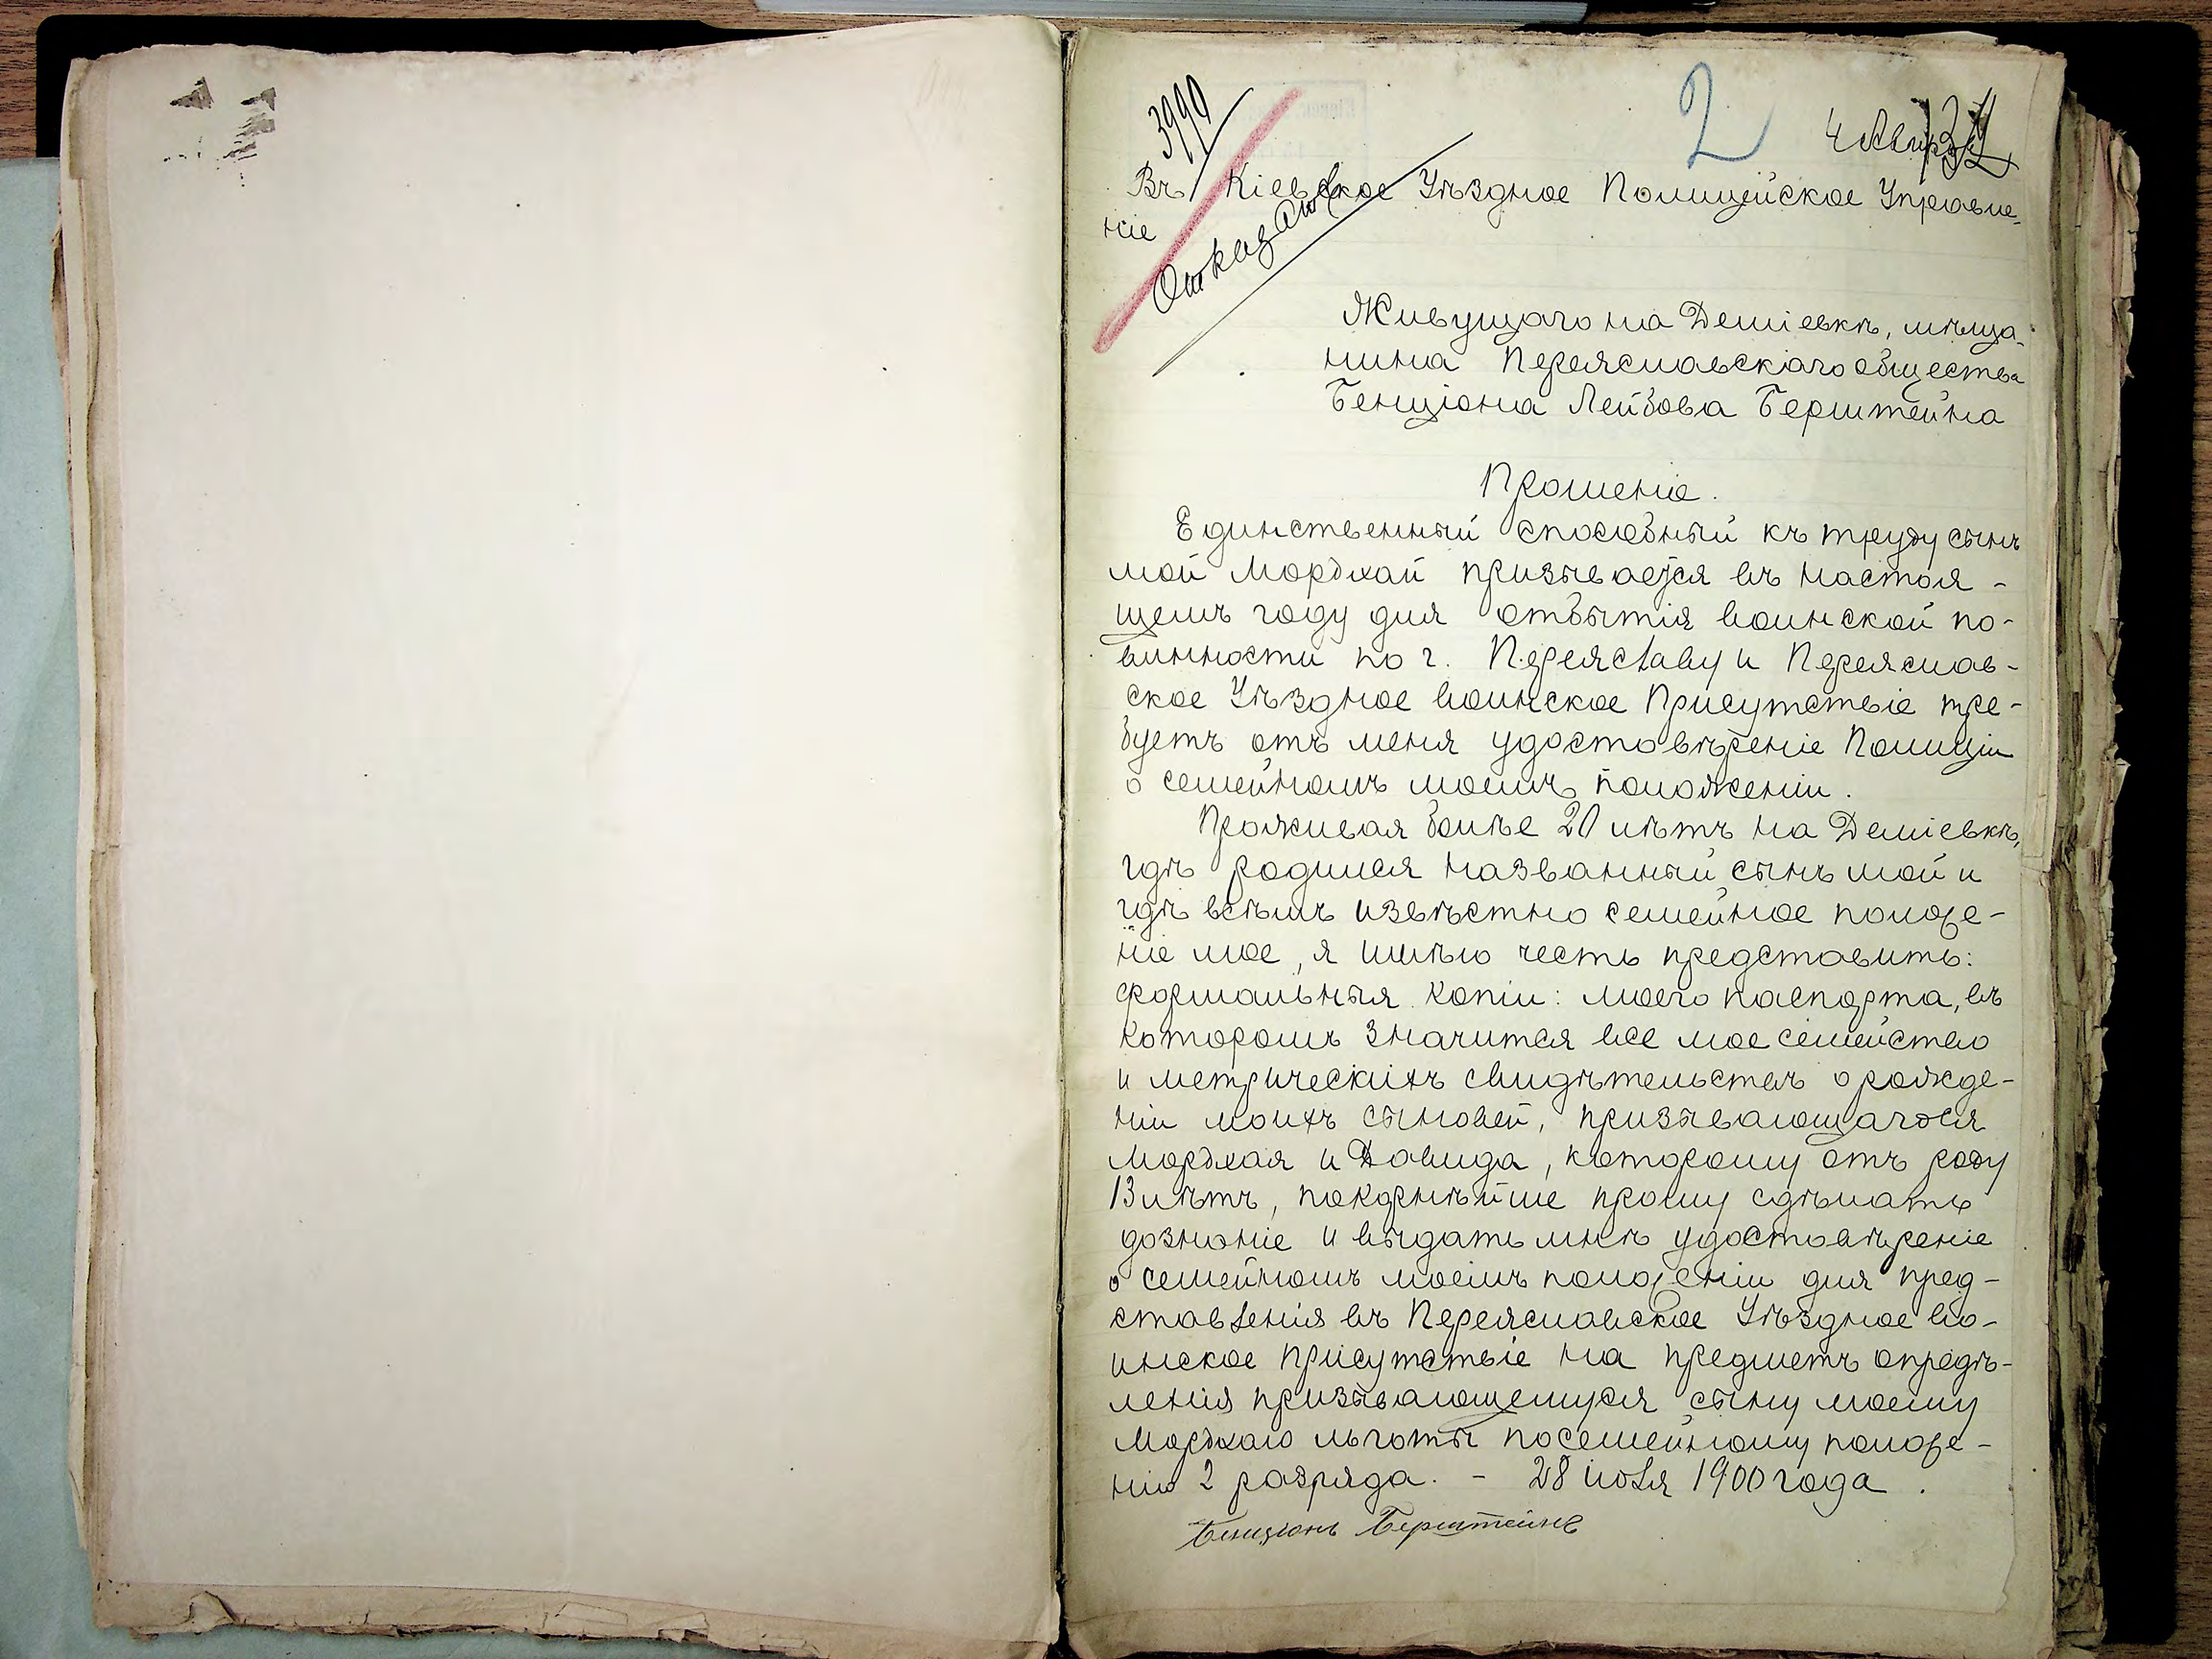 3990
2
4
Въ Кіевское Уѣздное Полицейское Управле-
ніе
Отказать
Живущаго на Деміевкѣ, мѣща-
нина Переяславскаго общества
Бенціона Лейбова Берштейна
Прошеніе.
Единственный способный къ труду сынъ
мой Мордхай призывается въ настоя-
щемъ году для отбытія воинской по-
винности по г. Переяславу и Переяслав-
ское Уѣздное воинское Присутствіе тре-
буетъ отъ меня удостовѣреніе Полиціи
о семейномъ моемъ положеніи.
Проживая болѣе 20 лѣтъ на Деміевкѣ,
гдѣ родился названный сынъ мой и
гдѣ всѣмъ извѣстно семейное положе-
ніе мое, я имѣю честь представить:
формальныя копіи: моего паспорта, въ
которомъ значится все мое семейство
и метрическихъ свидѣтельствъ о рожде-
ніи моихъ сыновей, призывающагося
Мордхая и Давида, которому отъ роду
13 лѣтъ, покорнѣйше прошу сдѣлать
дознаніе и выдать мнѣ удостовѣреніе
о семейномъ моемъ положеніи для пред-
ставленія въ Переяславское Уѣздное во-
инское присутствіе на предметъ опредѣ-
ленія призывающемуся сыну моему
Мордхаю льготы по семейному положе-
нію 2 разряда. - 28 іюля 1900 года.
Бенціонъ Берштейнъ